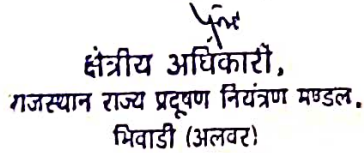 क्षेत्रीय अधिकारी,
राजस्थान राज्य प्रदूषण नियंत्रण मण्डल.
भिवाडी (अलवर)